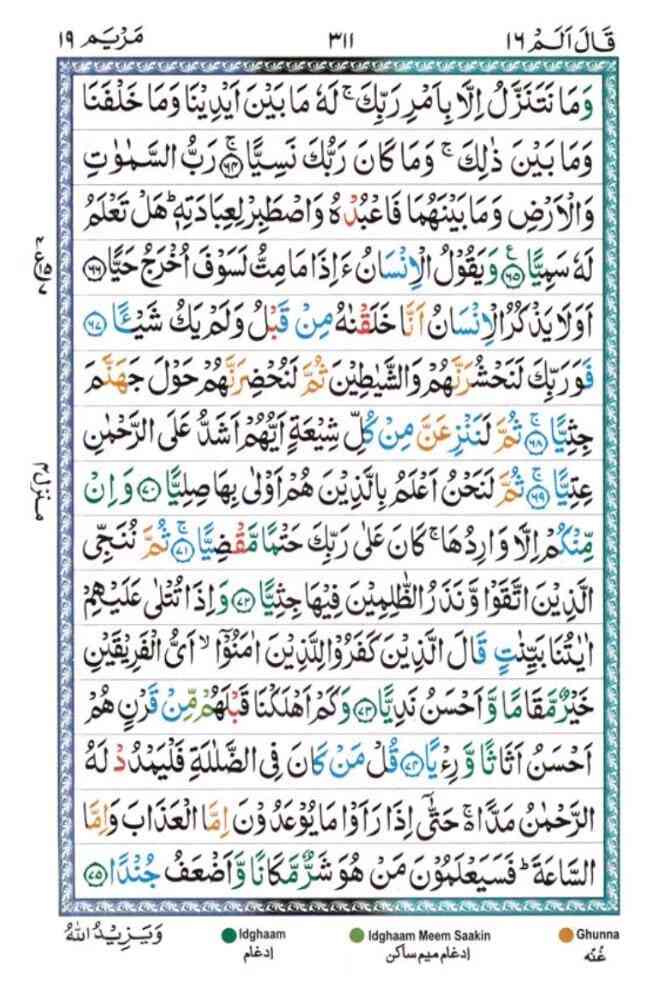 قَالَ اَلَمْ ١٦
٣١١
مَرْيَم ١٩
وَمَا نَتَنَزَّلُ اِلَّا بِاَمْرِ رَبِّكَ ۚ لَهٗ مَا بَيْنَ اَيْدِيْنَا وَمَا خَلْفَنَا
وَمَا بَيْنَ ذٰلِكَ ۚ وَمَا كَانَ رَبُّكَ نَسِيًّا ۚ ﴿٦٤﴾ رَبُّ السَّمٰوٰتِ
وَالْاَرْضِ وَمَا بَيْنَهُمَا فَاعْبُدْهُ وَاصْطَبِرْ لِعِبَادَتِهٖ ؕ هَلْ تَعْلَمُ
لَهٗ سَمِيًّا ﴿٦٥﴾ ع وَيَقُوْلُ الْاِنْسَانُ ءَاِذَا مَا مِتُّ لَسَوْفَ اُخْرَجُ حَيًّا ﴿٦٦﴾
اَوَلَا يَذْكُرُ الْاِنْسَانُ اَنَّا خَلَقْنٰهُ مِنْ قَبْلُ وَلَمْ يَكُ شَيْـًٔا ﴿٦٧﴾
فَوَرَبِّكَ لَنَحْشُرَنَّهُمْ وَالشَّيٰطِيْنَ ثُمَّ لَنُحْضِرَنَّهُمْ حَوْلَ جَهَنَّمَ
جِثِيًّا ۚ ﴿٦٨﴾ ثُمَّ لَنَنْزِعَنَّ مِنْ كُلِّ شِيْعَةٍ اَيُّهُمْ اَشَدُّ عَلَى الرَّحْمٰنِ
عِتِيًّا ۚ ﴿٦٩﴾ ثُمَّ لَنَحْنُ اَعْلَمُ بِالَّذِيْنَ هُمْ اَوْلٰى بِهَا صِلِيًّا ﴿٧٠﴾ وَاِنْ
مِّنْكُمْ اِلَّا وَارِدُهَا ۚ كَانَ عَلٰى رَبِّكَ حَتْمًا مَّقْضِيًّا ۚ ﴿٧١﴾ ثُمَّ نُنَجِّى
الَّذِيْنَ اتَّقَوْا وَّنَذَرُ الظّٰلِمِيْنَ فِيْهَا جِثِيًّا ﴿٧٢﴾ وَاِذَا تُتْلٰى عَلَيْهِمْ
اٰيٰتُنَا بَيِّنٰتٍ قَالَ الَّذِيْنَ كَفَرُوْا لِلَّذِيْنَ اٰمَنُوْۤا ۙ اَىُّ الْفَرِيْقَيْنِ
خَيْرٌ مَّقَامًا وَّاَحْسَنُ نَدِيًّا ﴿٧٣﴾ وَكَمْ اَهْلَكْنَا قَبْلَهُمْ مِّنْ قَرْنٍ هُمْ
اَحْسَنُ اَثَاثًا وَّرِءْيًا ﴿٧٤﴾ قُلْ مَنْ كَانَ فِى الضَّلٰلَةِ فَلْيَمْدُدْ لَهُ
الرَّحْمٰنُ مَدًّا ۚ حَتّٰۤى اِذَا رَاَوْا مَا يُوْعَدُوْنَ اِمَّا الْعَذَابَ وَاِمَّا
السَّاعَةَ ؕ فَسَيَعْلَمُوْنَ مَنْ هُوَ شَرٌّ مَّكَانًا وَّاَضْعَفُ جُنْدًا ﴿٧٥﴾
منزل ٤
وَيَزِيْدُ اللهُ
Idghaam
ادغام
Idghaam Meem Saakin
ادغام میم ساکن
Ghunna
غُنّه